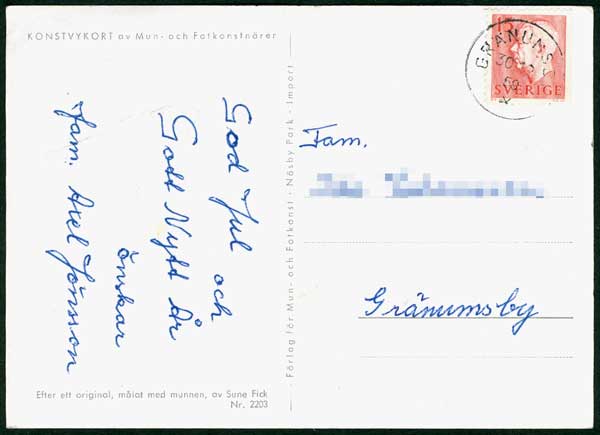 KONSTVYKORT av Mun- och Fotkonstnärer
God Jul och
Gott Nytt År
önskar
fam. Axel Jönsson
Efter ett original, målat med munnen, av Sune Fick
Nr. 2203
- Förlag för Mun- och Fotkonst - Näsby Park - Import -
15
SVERIGE
GRÄNUM
30
59
Fam.
Gränumsby